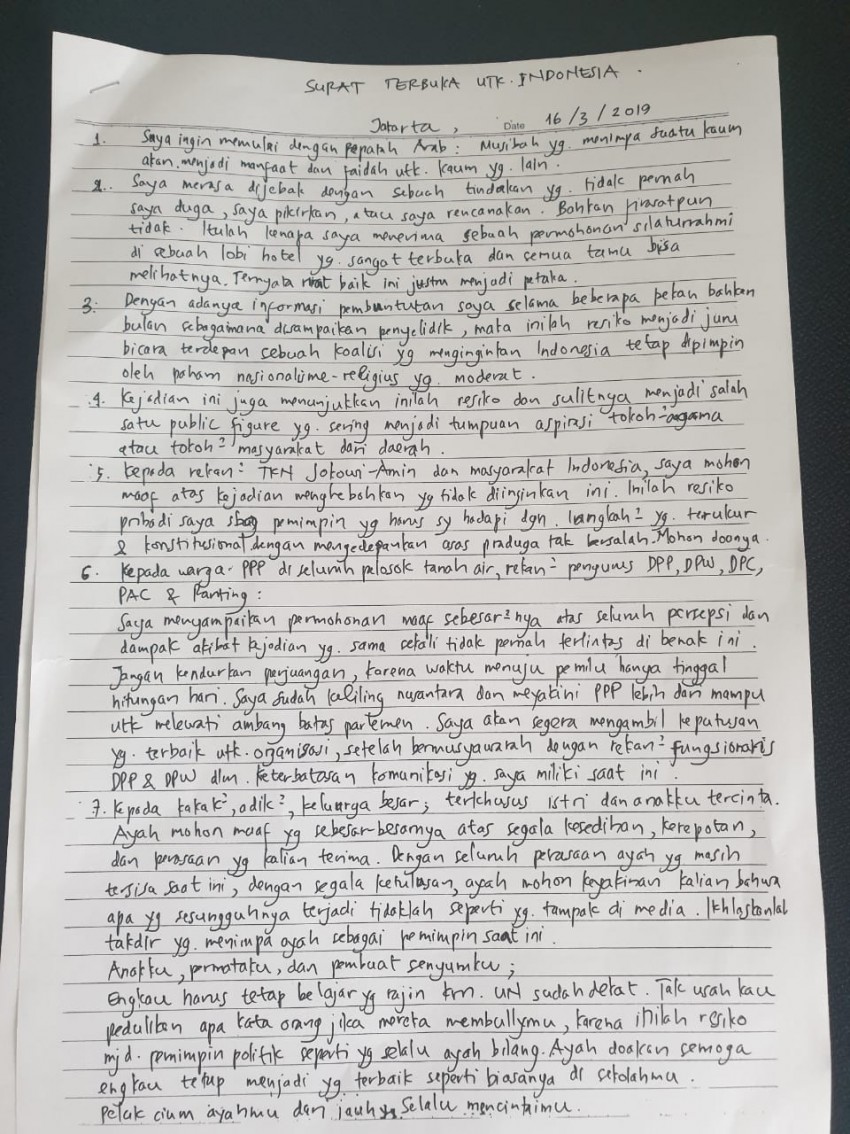 SURAT TERBUKA UTK. INDONESIA.
Jakarta, Date 16/3/2019
1. Saya ingin memulai dengan pepatah Arab: Musibah yg. menimpa suatu kaum
akan menjadi manfaat dan faidah utk. kaum yg. lain.
2. Saya merasa dijebak dengan sebuah tindakan yg. tidak pernah
saya duga, saya pikirkan, atau saya rencanakan. Bahkan firasatpun
tidak. Itulah kenapa saya menerima sebuah permohonan silaturrahmi
di sebuah lobi hotel yg. sangat terbuka dan semua tamu bisa
melihatnya. Ternyata niat baik ini justru menjadi petaka.
3. Dengan adanya informasi pembuntutan saya selama beberapa pekan bahkan
bulan sebagamana disampaikan penyelidik, maka inilah resiko menjadi juru
bicara terdepan sebuah koalisi yg menginginkan Indonesia tetap dipimpin
oleh paham nasionalisme-religius yg. moderat.
4. Kejadian ini juga menunjukkan inilah resiko dan sulitnya menjadi salah
satu public figure yg. sering menjadi tumpuan aspirasi tokoh² agama
atau tokoh² masyarakat dari daerah.
5. Kepada rekan² TKN Jokowi-Amin dan masyarakat Indonesia, saya mohon
maaf atas kejadian menghebohkan yg tidak diinginkan ini. Inilah resiko
pribadi saya sbag pemimpin yg harus sy hadapi dgn. langkah² yg. terukur
& konstitusional dengan mengedepankan asas praduga tak bersalah. Mohon doanya.
6. Kepada warga PPP di seluruh pelosok tanah air, rekan² pengurus DPP, DPW, DPC,
PAC & Ranting:
Saya menyampaikan permohonan maaf sebesar²nya atas seluruh persepsi dan
dampak akibat kejadian yg. sama sekali tidak pernah terlintas di benak ini.
Jangan kendurkan perjuangan, karena waktu menuju pemilu hanya tinggal
hitungan hari. Saya sudah keliling nusantara dan meyakini PPP lebih dari mampu
utk melewati ambang batas parlemen. Saya akan segera mengambil keputusan
yg. terbaik utk. organisasi, setelah bermusyawarah dengan rekan² fungsionaris
DPP & DPW dlm. keterbatasan komunikasi yg. saya miliki saat ini.
7. Kepada kakak², adik², keluarga besar; terkhusus istri dan anakku tercinta.
Ayah mohon maaf yg sebesar-besarnya atas segala kesedihan, kerepotan,
dan perasaan yg kalian terima. Dengan seluruh perasaan ayah yg masih
tersisa saat ini, dengan segala ketulusan, ayah mohon keyakinan kalian bahwa
apa yg sesungguhnya terjadi tidaklah seperti yg. tampak di media. Ikhlaskanlah
takdir yg. menimpa ayah sebagai pemimpin saat ini.
Anakku, permataku, dan pembuat senyumku;
Engkau harus tetap belajar yg rajin krn. UN sudah dekat. Tak usah kau
pedulikan apa kata orang jika mereka membullymu, karena inilah resiko
mjd. pemimpin politik seperti yg selalu ayah bilang. Ayah doakan semoga
engkau tetap menjadi yg. terbaik seperti biasanya di sekolahmu.
Peluk cium ayahmu dari jauh yg selalu mencintaimu.